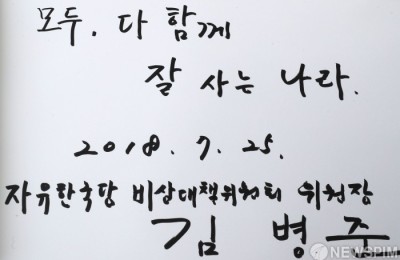 모두. 다 함께
잘 사는 나라.
2018. 7. 25.
자유한국당 비상대책위원회 위원장
김 병 준
NEWSPIM